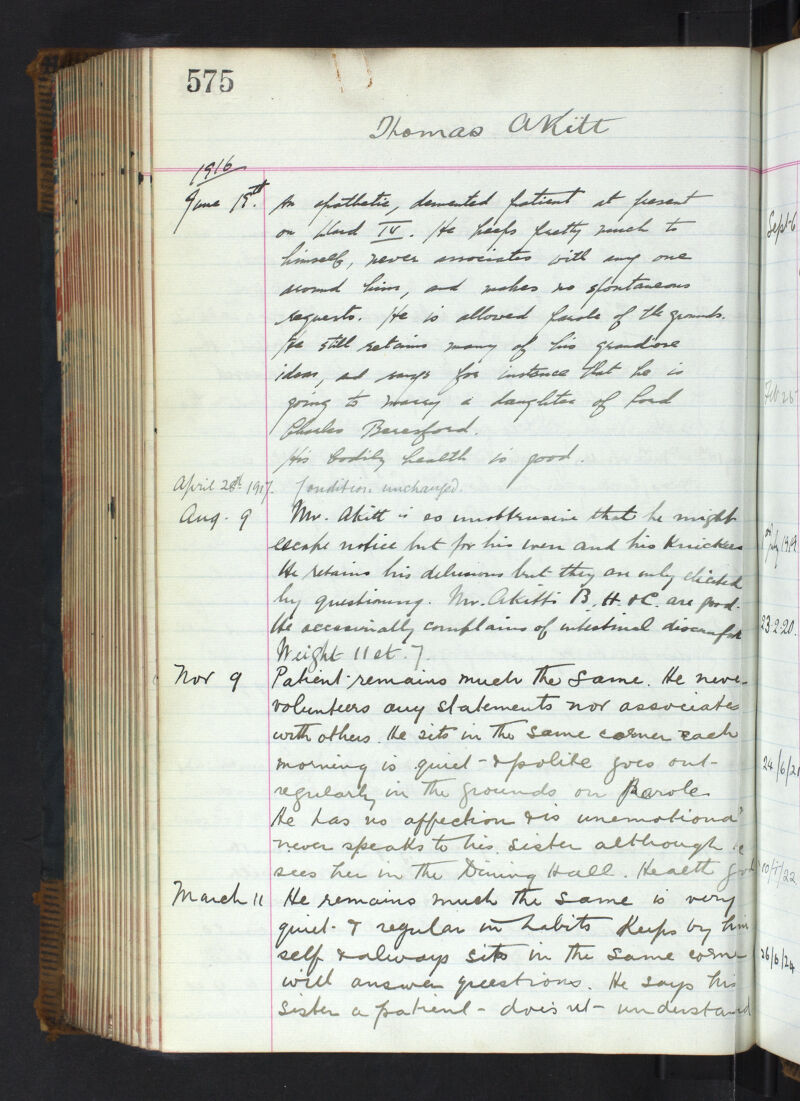 575
Thomas Akitt
1916
June 19th. An apathetic, demented patient at present
on Ward IV. He keeps pretty much to
himself, never associates with any one
around him, and makes no spontaneous
requests. He is allowed parole of the grounds.
He still retains many of his grandiose
ideas, and says for instance that he is
going to marry a daughter of Lord
Charles Beresford.
His bodily health is good.
April 28th 1917. Condition unchanged.
Aug. 9 Mr. Akitt is so unobtrusive that he might
escape notice but for his and his Knickers
He retains his delusions but they are only elicited
by questioning. Mr. Akitt's B. H. & C. are good.
He occasionally complains of intestinal discomfort
Weight 11 st. 7
Nov 9 Patient remains much the same. He never
volunteers any statements nor associates
with others. He sits in the same corner each
morning is quiet & polite goes out
regularly in the grounds on Parole
He has no affection & is unemotional
never speaks to his sister although he
sees her in the Dining Hall. Health good
March 11 He remains much the same is very
quiet & regular in habits Keeps by him
self & always sits in the same corner
will answer questions. He says his
sister a patient - does nt understand
Sept 6
Feb 25
July 1919
23.2.20.
24/6/21
10/5/22
26/6/24